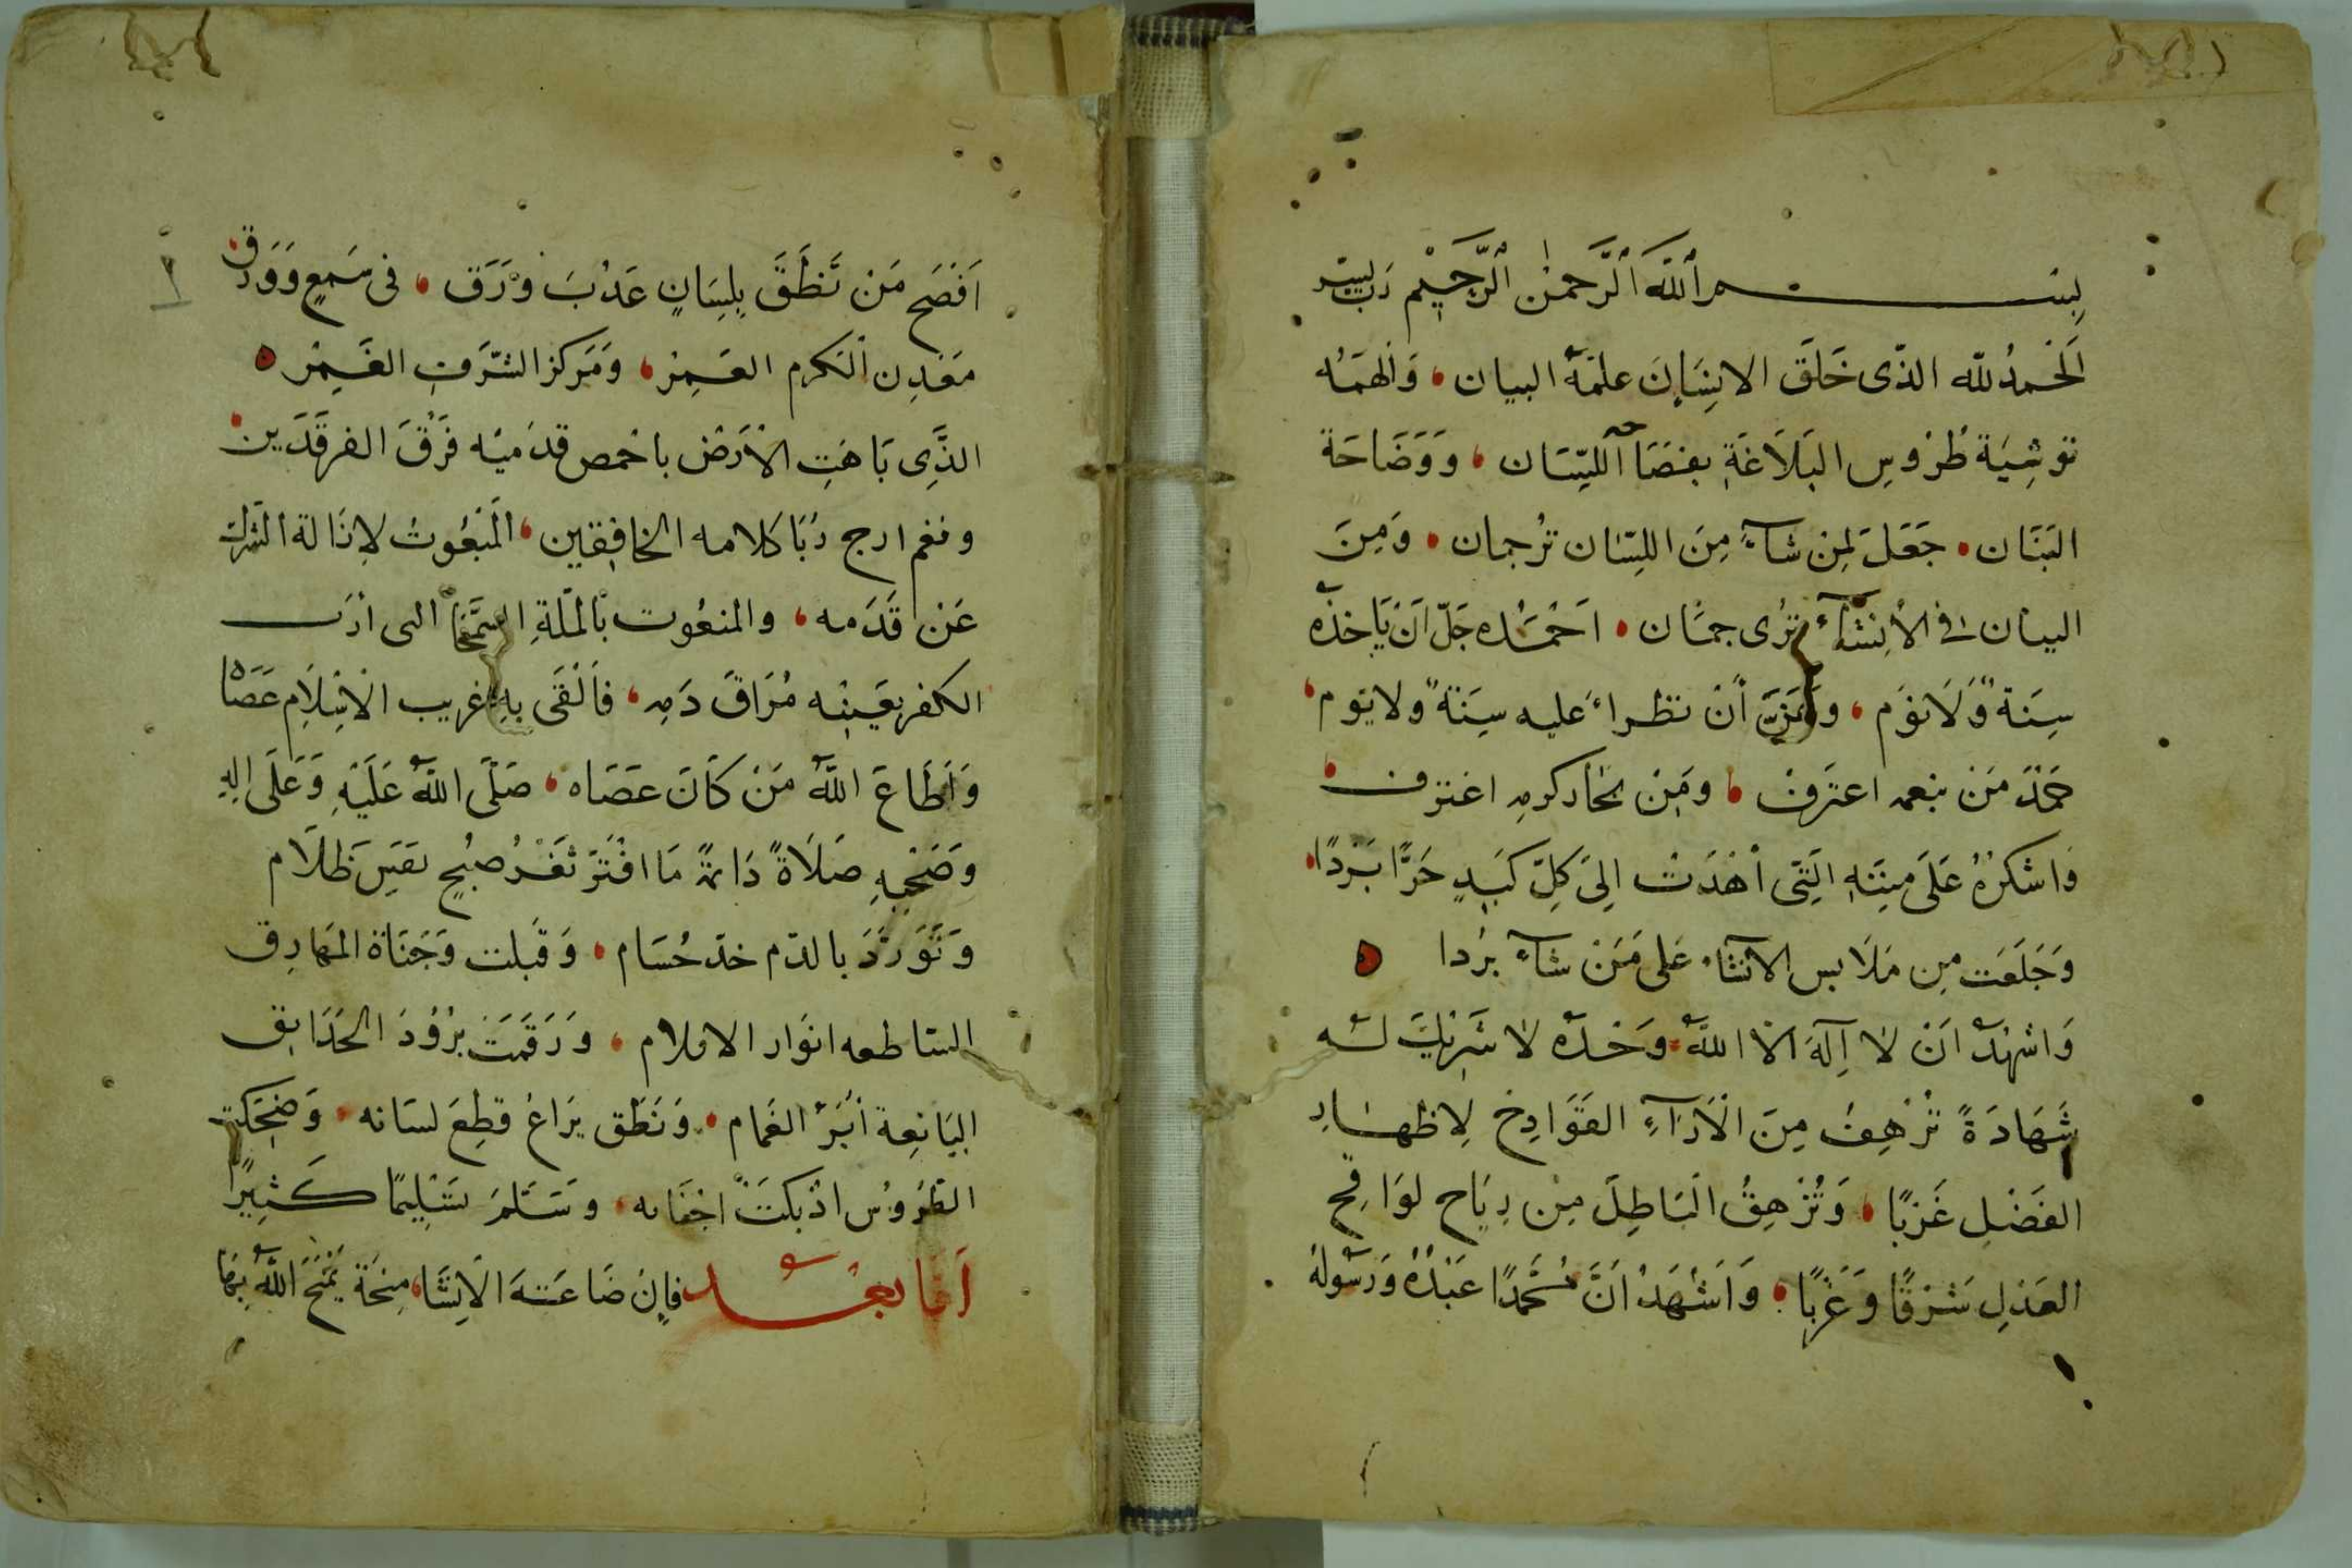 بسم الله الرحمن الرحيم رب يسر
الحمد لله الذى خلق الانسان علمه البيان، والهمه
توشية طروس البلاغة بفصاحة اللسان، ووضاحة
البنان، جعل لمن شاء من اللسان ترجمان، ومن
البيان فى الانشاء ترى جمان، احمده جل ان ياخذه
سنة ولا نوم، وان تطراء عليه سنة ولا يوم،
حمد من بنعمه اعترف، ومن بحار كرمه اغترف
واشكره على مننه التى اهدت الى كل كبد حرا بردا،
وخلعت من ملابس الانشاء على من شاء بردا
واشهد ان لا اله الا الله وحده لا شريك له
شهادة ترهف من الآراء القوادح لاظهار
الفضل غربا، وتزهق الباطل من رياح لواقح
العدل شرقا وغربا، واشهد ان محمدا عبده ورسوله
افصح من نطق بلسان عذب ورق، فى سمع وورق
معدن الكرم العمر، ومركز الشرف الغمر
الذى باهت الارض باخمص قدميه فرق الفرقدين
وفغم ارج ربا كلامه الخافقين، المبعوث لازالة الشرك
عن قدمه، والمنعوت بالملة السمحا الى ان
الكفر بعينه مراق دمه، فالقى به غريب الاسلام عصاه
واطاع الله من كان عصاه، صلى الله عليه وعلى اله
وصحبه صلاة دائمة ما افتر ثغر صبح بفيس ظلام
وتورد بالدم خد حسام، وقبلت وجناة المهارق
الساطعه انوار الاقلام، ورقمت برود الحدايق
اليانعة ابر الغمام، ونطق يراع قطع لسانه، وضحكت
الطروس اذ بكت اجفانه، وسلم تسليما كثيرا
اما بعد فان ضاعته الانشا، منحة يمنح الله بها